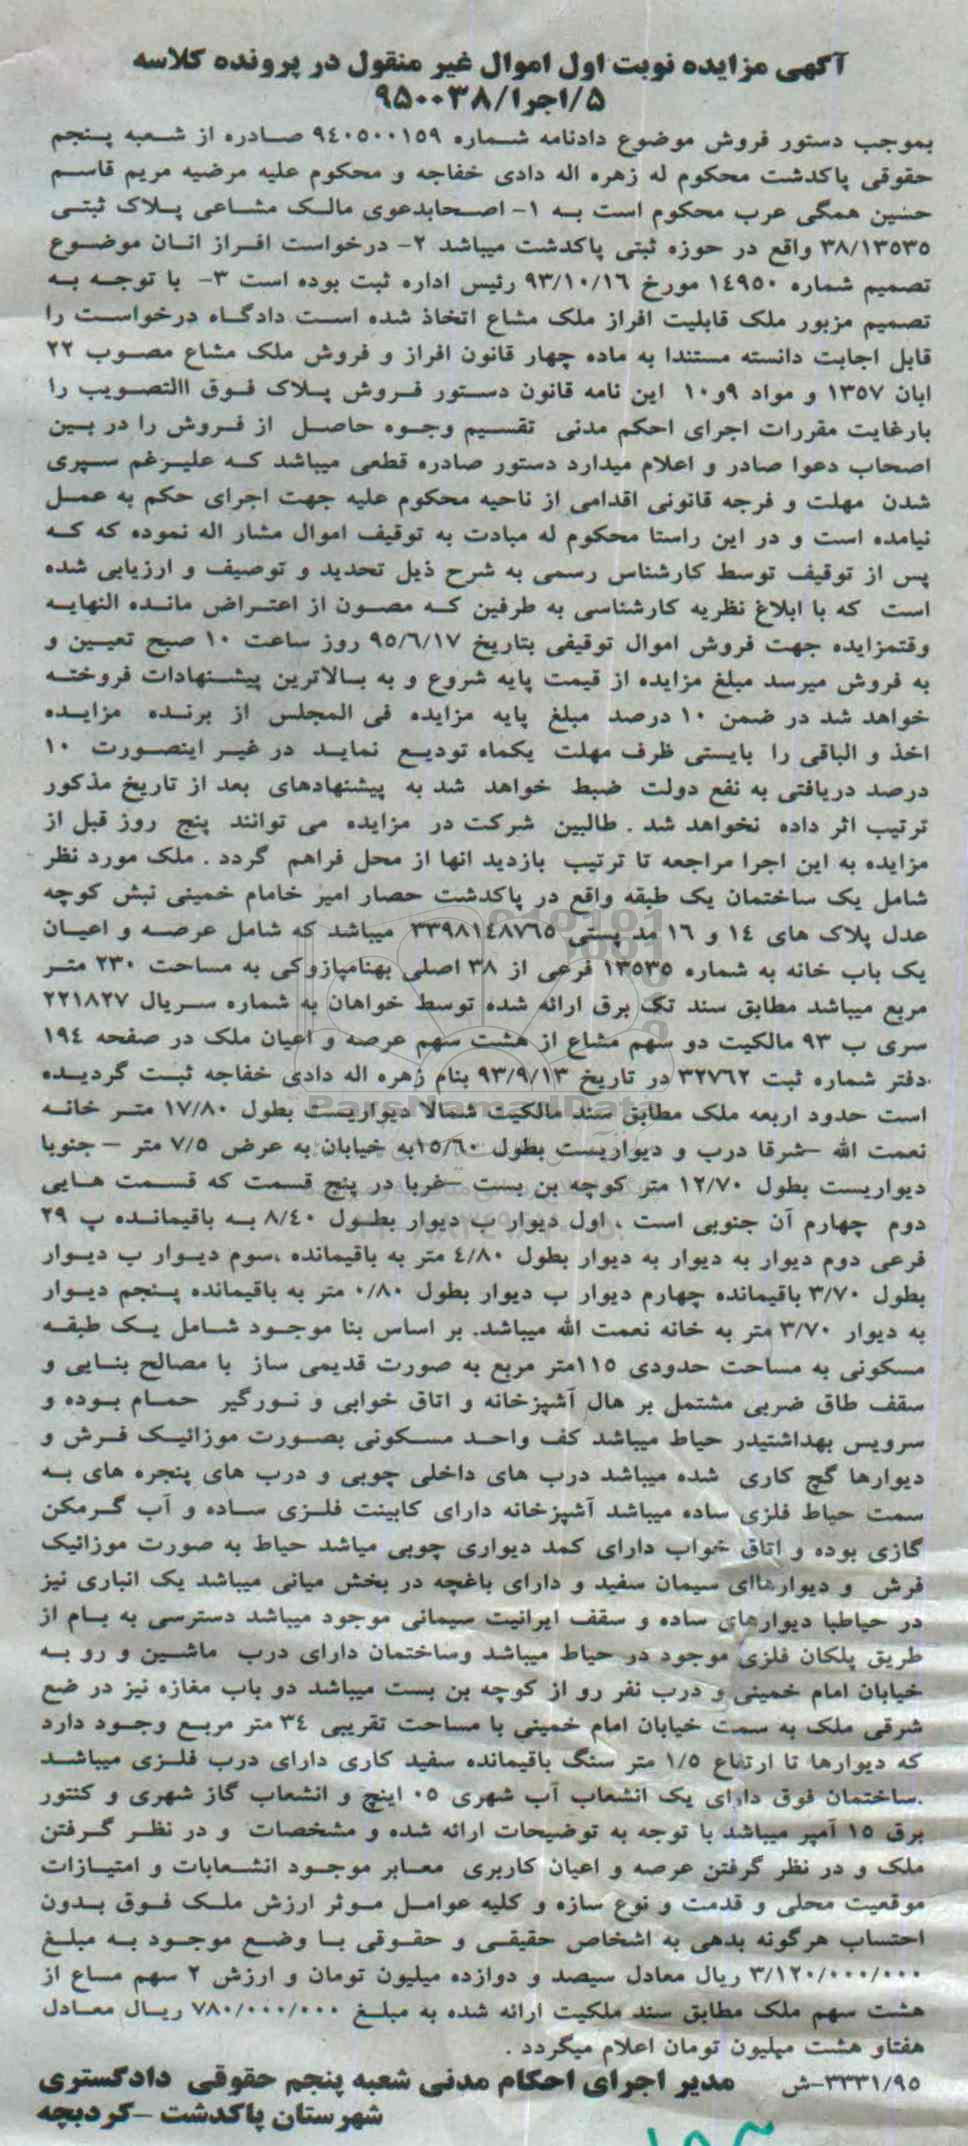 آگهی مزایده نوبت اول اموال غیر منقول در پرونده کلاسه
۵/اجرا/۹۵۰۰۳۸
بموجب دستور فروش موضوع دادنامه شماره ۹۴۰۵۰۰۱۵۹ صادره از شعبه پنجم
حقوقی پاکدشت محکوم له زهره اله دادی خفاجه و محکوم علیه مرضیه مریم قاسم
حسین همگی عرب محکوم است به ۱- اصحابدعوی مالک مشاعی پلاک ثبتی
۳۸/۱۳۵۳۵ واقع در حوزه ثبتی پاکدشت میباشد ۲- درخواست افراز انان موضوع
تصمیم شماره ۱۴۹۵۰ مورخ ۹۳/۱۰/۱۶ رئیس اداره ثبت بوده است ۳- با توجه به
تصمیم مزبور ملک قابلیت افراز ملک مشاع اتخاذ شده است دادگاه درخواست را
قابل اجابت دانسته مستندا به ماده چهار قانون افراز و فروش ملک مشاع مصوب ۲۲
ابان ۱۳۵۷ و مواد ۹و۱۰ این نامه قانون دستور فروش پلاک فوق االتصویب را
بارغایت مقررات اجرای احکم مدنی تقسیم وجوه حاصل از فروش را در بین
اصحاب دعوا صادر و اعلام میدارد دستور صادره قطعی میباشد که علیرغم سپری
شدن مهلت و فرجه قانونی اقدامی از ناحیه محکوم علیه جهت اجرای حکم به عمل
نیامده است و در این راستا محکوم له مبادت به توقیف اموال مشار اله نموده که که
پس از توقیف توسط کارشناس رسمی به شرح ذیل تحدید و توصیف و ارزیابی شده
است که با ابلاغ نظریه کارشناسی به طرفین که مصون از اعتراض مانده النهایه
وقتمزایده جهت فروش اموال توقیفی بتاریخ ۹۵/۶/۱۷ روز ساعت ۱۰ صبح تعیین و
به فروش میرسد مبلغ مزایده از قیمت پایه شروع و به بالاترین پیشنهادات فروخته
خواهد شد در ضمن ۱۰ درصد مبلغ پایه مزایده فی المجلس از برنده مزایده
اخذ و الباقی را بایستی ظرف مهلت یکماه تودیع نماید در غیر اینصورت ۱۰
درصد دریافتی به نفع دولت ضبط خواهد شد به پیشنهادهای بعد از تاریخ مذکور
ترتیب اثر داده نخواهد شد . طالبین شرکت در مزایده می توانند پنج روز قبل از
مزایده به این اجرا مراجعه تا ترتیب بازدید انها از محل فراهم گردد . ملک مورد نظر
شامل یک ساختمان یک طبقه واقع در پاکدشت حصار امیر خامام خمینی نبش کوچه
عدل پلاک های ۱۴ و ۱۶ مد پستی ۳۳۹۸۱۴۸۷۶۵ میباشد که شامل عرصه و اعیان
یک باب خانه به شماره ۱۳۵۳۵ فرعی از ۳۸ اصلی بهنامپازوکی به مساحت ۲۳۰ متر
مربع میباشد مطابق سند تک برق ارائه شده توسط خواهان به شماره سریال ۲۲۱۸۲۷
سری ب ۹۳ مالکیت دو سهم مشاع از هشت سهم عرصه و اعیان ملک در صفحه ۱۹۴
دفتر شماره ثبت ۳۲۷۶۲ در تاریخ ۹۳/۹/۱۳ بنام زهره اله دادی خفاجه ثبت گردیده
است حدود اربعه ملک مطابق سند مالکیت شمالا دیواریست بطول ۱۷/۸۰ متر خانه
نعمت الله –شرقا درب و دیواریست بطول ۱۵/۶۰به خیابان به عرض ۷/۵ متر – جنوبا
دیواریست بطول ۱۲/۷۰ متر کوچه بن بست –غربا در پنج قسمت که قسمت هایی
دوم چهارم آن جنوبی است ، اول دیوار ب دیوار بطول ۸/۴۰ به باقیمانده پ ۲۹
فرعی دوم دیوار به دیوار به دیوار بطول ۴/۸۰ متر به باقیمانده ،سوم دیوار ب دیوار
بطول ۳/۷۰ باقیمانده چهارم دیوار ب دیوار بطول ۰/۸۰ متر به باقیمانده پنجم دیوار
به دیوار ۳/۷۰ متر به خانه نعمت الله میباشد. بر اساس بنا موجود شامل یک طبقه
مسکونی به مساحت حدودی ۱۱۵متر مربع به صورت قدیمی ساز با مصالح بنایی و
سقف طاق ضربی مشتمل بر هال آشپزخانه و اتاق خوابی و نورگیر حمام بوده و
سرویس بهداشتیدر حیاط میباشد کف واحد مسکونی بصورت موزائیک فرش و
دیوارها گچ کاری شده میباشد درب های داخلی چوبی و درب های پنجره های به
سمت حیاط فلزی ساده میباشد آشپزخانه دارای کابینت فلزی ساده و آب گرمکن
گازی بوده و اتاق خواب دارای کمد دیواری چوبی میاشد حیاط به صورت موزائیک
فرش و دیوارهاای سیمان سفید و دارای باغچه در بخش میانی میباشد یک انباری نیز
در حیاطبا دیوارهای ساده و سقف ایرانیت سیمانی موجود میباشد دسترسی به بام از
طریق پلکان فلزی موجود در حیاط میباشد وساختمان دارای درب ماشین و رو به
خیابان امام خمینی و درب نفر رو از کوچه بن بست میباشد دو باب مغازه نیز در ضع
شرقی ملک به سمت خیابان امام خمینی با مساحت تقریبی ۳۴ متر مربع وجود دارد
که دیوارها تا ارتفاع ۱/۵ متر سنگ باقیمانده سفید کاری دارای درب فلزی میباشد
.ساختمان فوق دارای یک انشعاب آب شهری ۰۵ اینچ و انشعاب گاز شهری و کنتور
برق ۱۵ آمپر میباشد با توجه به توضیحات ارائه شده و مشخصات و در نظر گرفتن
ملک و در نظر گرفتن عرصه و اعیان کاربری معابر موجود انشعابات و امتیازات
موقعیت محلی و قدمت و نوع سازه و کلیه عوامل موثر ارزش ملک فوق بدون
احتساب هرگونه بدهی به اشخاص حقیقی و حقوقی با وضع موجود به مبلغ
۳/۱۲۰/۰۰۰/۰۰۰ ریال معادل سیصد و دوازده میلیون تومان و ارزش ۲ سهم مساع از
هشت سهم ملک مطابق سند ملکیت ارائه شده به مبلغ ۷۸۰/۰۰۰/۰۰۰ ریال معادل
هفتاو هشت میلیون تومان اعلام میگردد .
۳۳۳۱/۹۵–ش مدیر اجرای احکام مدنی شعبه پنجم حقوقی دادگستری
شهرستان پاکدشت –کردبچه
ParsNamadData